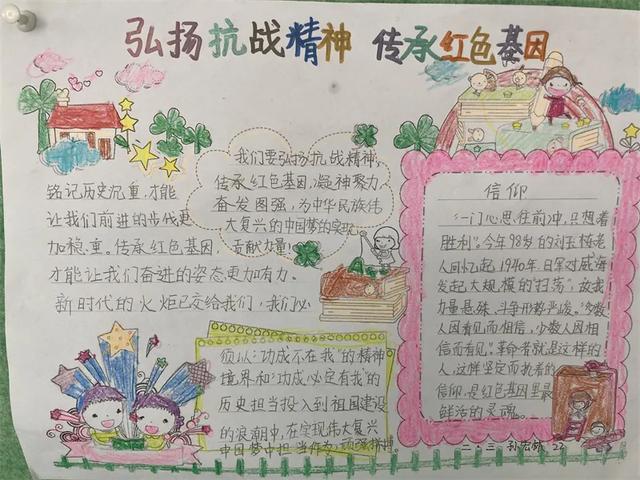 弘扬抗战精神 传承红色基因
铭记历史沉重,才能
让我们前进的步伐更
加稳重。传承红色基因,
才能让我们奋进的姿态更加有力。
新时代的火炬已交给我们,我们必
我们要弘扬抗战精神
传承红色基因,凝神聚力
奋发图强,为中华民族伟
大复兴的中国梦的实现
贡献力量!
须以“功成不在我”的精神
境界和“功成必定有我”的
历史担当投入到祖国建设
的浪潮中,在实现伟大复兴
中国梦中担当作为,顽强拼搏。
信仰
“一门心思往前冲,只想着
胜利”。今年98岁的刘玉栋老
人回忆起,1940年,日军对威海
发起大规模的“扫荡”,敌我
力量悬殊,斗争形势严峻。“多数
人因看见而相信,少数人因相
信而看见”。革命者就是这样的
人,这样坚定而执着的
信仰,是红色基因里最
鲜活的灵魂。
二、三 孙宏 22